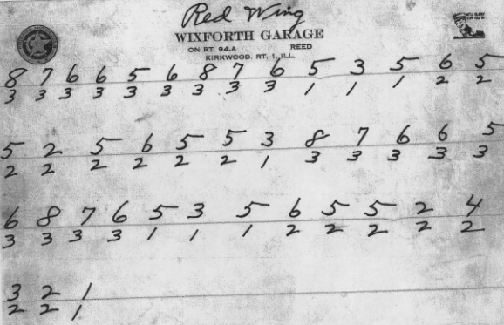 Red Wing
WIXFORTH GARAGE
ON RT. 94.A REED
KIRKWOOD, RT. 1, ILL.
8 7 6 6 5 6 8 7 6 5 3 5 6 5
3 3 3 3 3 3 3 3 3 1 1 1 2 2
5 2 5 6 5 5 3 8 7 6 6 5
2 2 2 2 2 2 1 3 3 3 3 3
6 8 7 6 5 3 5 6 5 5 2 4
3 3 3 3 1 1 1 2 2 2 2 2
3 2 1
2 2 1